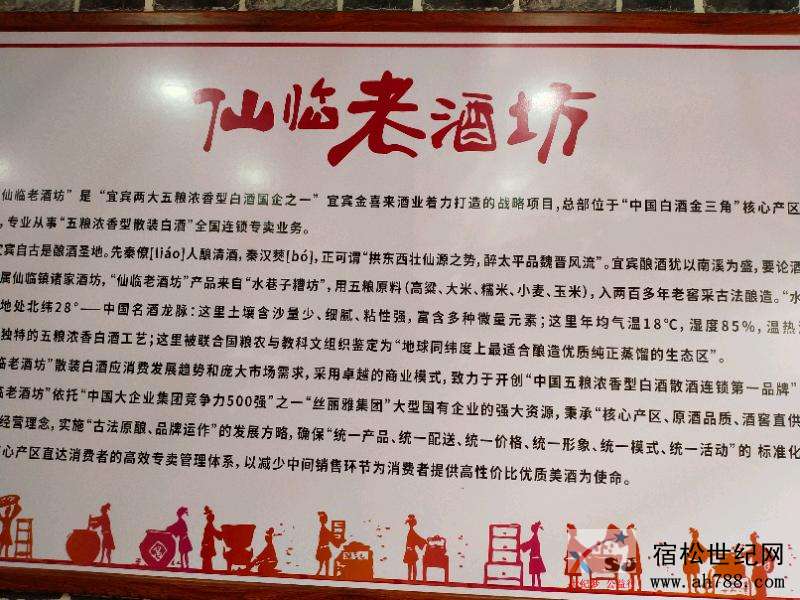 仙临老酒坊
仙临老酒坊”是“宜宾两大五粮浓香型白酒国企之一”宜宾金喜来酒业着力打造的战略项目,总部位于“中国白酒金三角”核心产区
,专业从事“五粮浓香型散装白酒”全国连锁专卖业务。
宜宾自古是酿酒圣地。先秦僚[liáo]人酿清酒,秦汉僰[bó],正可谓“拱东西壮仙源之势,醉太平品魏晋风流”。宜宾酿酒犹以南溪为盛,要论酒
属仙临镇诸家酒坊,“仙临老酒坊”产品来自“水巷子糟坊”,用五粮原料(高粱、大米、糯米、小麦、玉米),入两百多年老窖采古法酿造。“水
地处北纬28°——中国名酒龙脉:这里土壤含沙量少、细腻、粘性强,富含多种微量元素;这里年均气温18℃,湿度85%,温热
独特的五粮浓香白酒工艺;这里被联合国粮农与教科文组织鉴定为“地球同纬度上最适合酿造优质纯正蒸馏的生态区”。
临老酒坊”散装白酒应消费发展趋势和庞大市场需求,采用卓越的商业模式,致力于开创“中国五粮浓香型白酒散酒连锁第一品牌”
临老酒坊”依托“中国大企业集团竞争力500强”之一“丝丽雅集团”大型国有企业的强大资源,秉承“核心产区、原酒品质、酒窖直供
经营理念,实施“古法原酿、品牌运作”的发展方略,确保“统一产品、统一配送、统一价格、统一形象、统一模式、统一活动”的 标准化
心产区直达消费者的高效专卖管理体系,以减少中间销售环节为消费者提供高性价比优质美酒为使命。
宿松世纪网
www.ah788.com